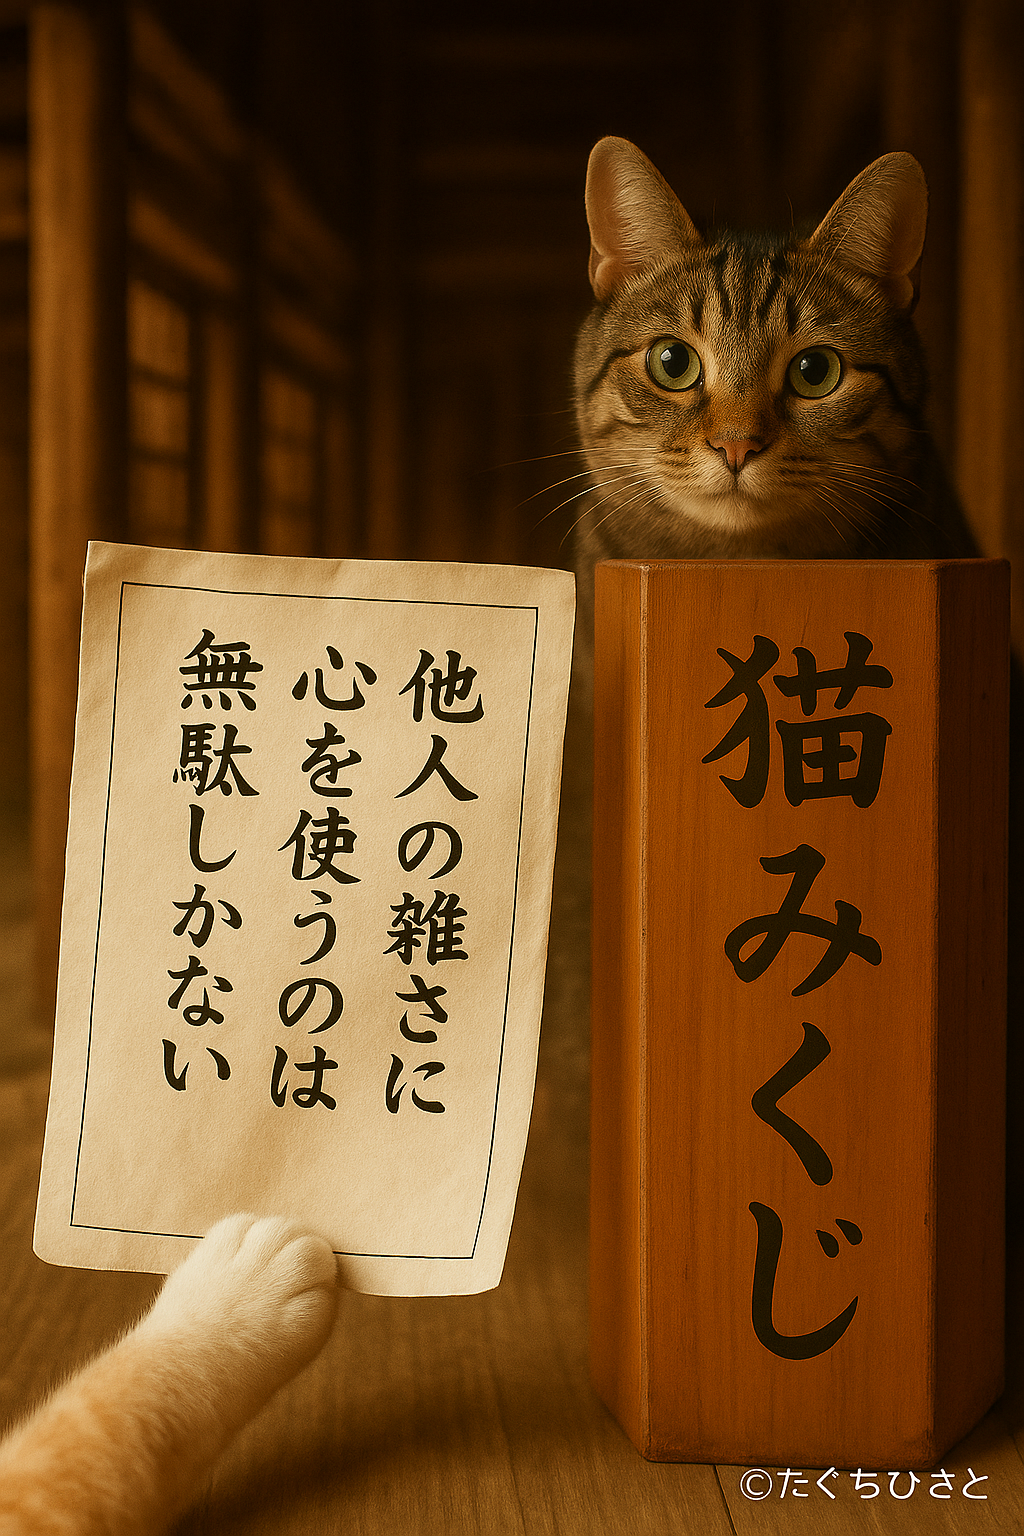 他人の雑さに
心を使うのは
無駄しかない
猫みくじ
©たぐちひさと